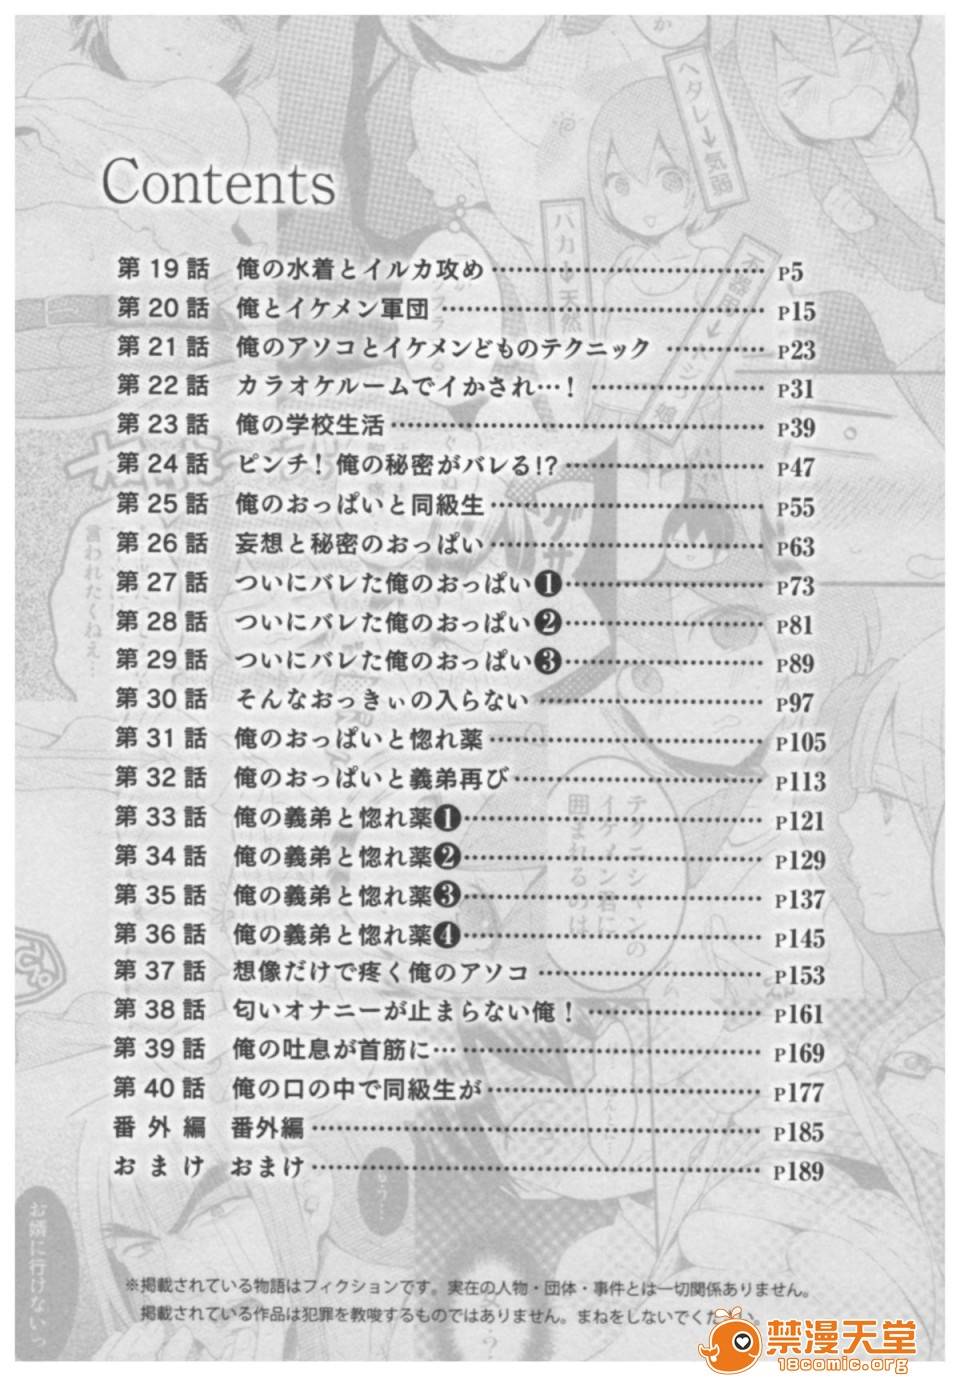 Contents
第19話 俺の水着とイルカ攻め P5
第20話 俺とイケメン軍団 P15
第21話 俺のアソコとイケメンどものテクニック P23
第22話 カラオケルームでイかされ…！ P31
第23話 俺の学校生活 P39
第24話 ピンチ！俺の秘密がバレる!? P47
第25話 俺のおっぱいと同級生 P55
第26話 妄想と秘密のおっぱい P63
第27話 ついにバレた俺のおっぱい❶ P73
第28話 ついにバレた俺のおっぱい❷ P81
第29話 ついにバレた俺のおっぱい❸ P89
第30話 そんなおっきぃの入らない P97
第31話 俺のおっぱいと惚れ薬 P105
第32話 俺のおっぱいと義弟再び P113
第33話 俺の義弟と惚れ薬❶ P121
第34話 俺の義弟と惚れ薬❷ P129
第35話 俺の義弟と惚れ薬❸ P137
第36話 俺の義弟と惚れ薬❹ P145
第37話 想像だけで疼く俺のアソコ P153
第38話 匂いオナニーが止まらない俺！ P161
第39話 俺の吐息が首筋に… P169
第40話 俺の口の中で同級生が P177
番外編 番外編 P185
おまけ おまけ P189
※掲載されている物語はフィクションです。実在の人物・団体・事件とは一切関係ありません。
掲載されている作品は犯罪を教唆するものではありません。まねをしないでください。
禁漫天堂
18comic.org